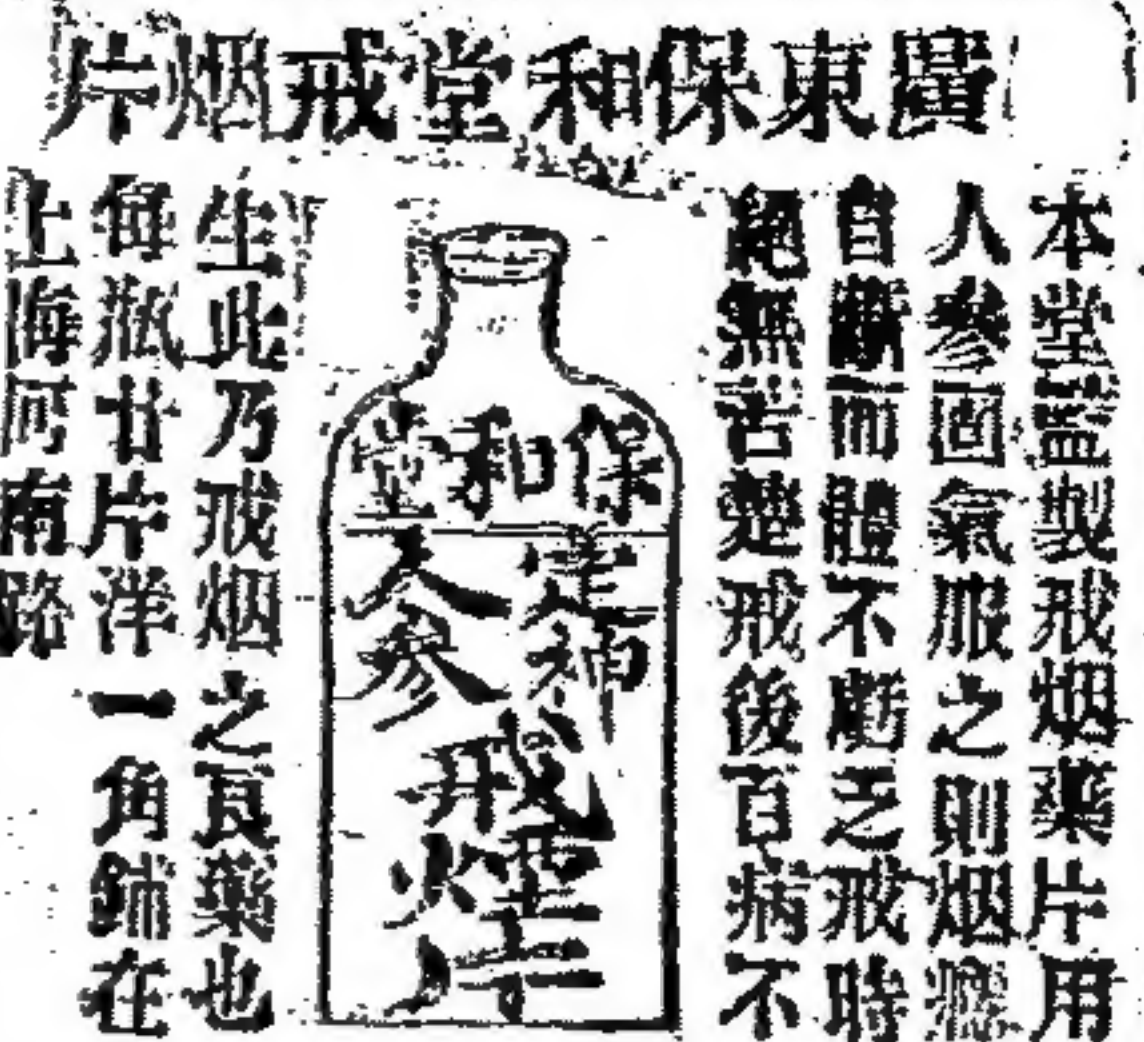 廣東保和堂戒烟片
本堂監製戒烟藥片用
人參固氣服之則烟癮
自斷而體不虧乏戒時
絕無苦楚戒後百病不
保和堂
定神
人參
戒煙片
生此乃戒烟之良藥也
每瓶廿片洋一角鋪在
上海河南路